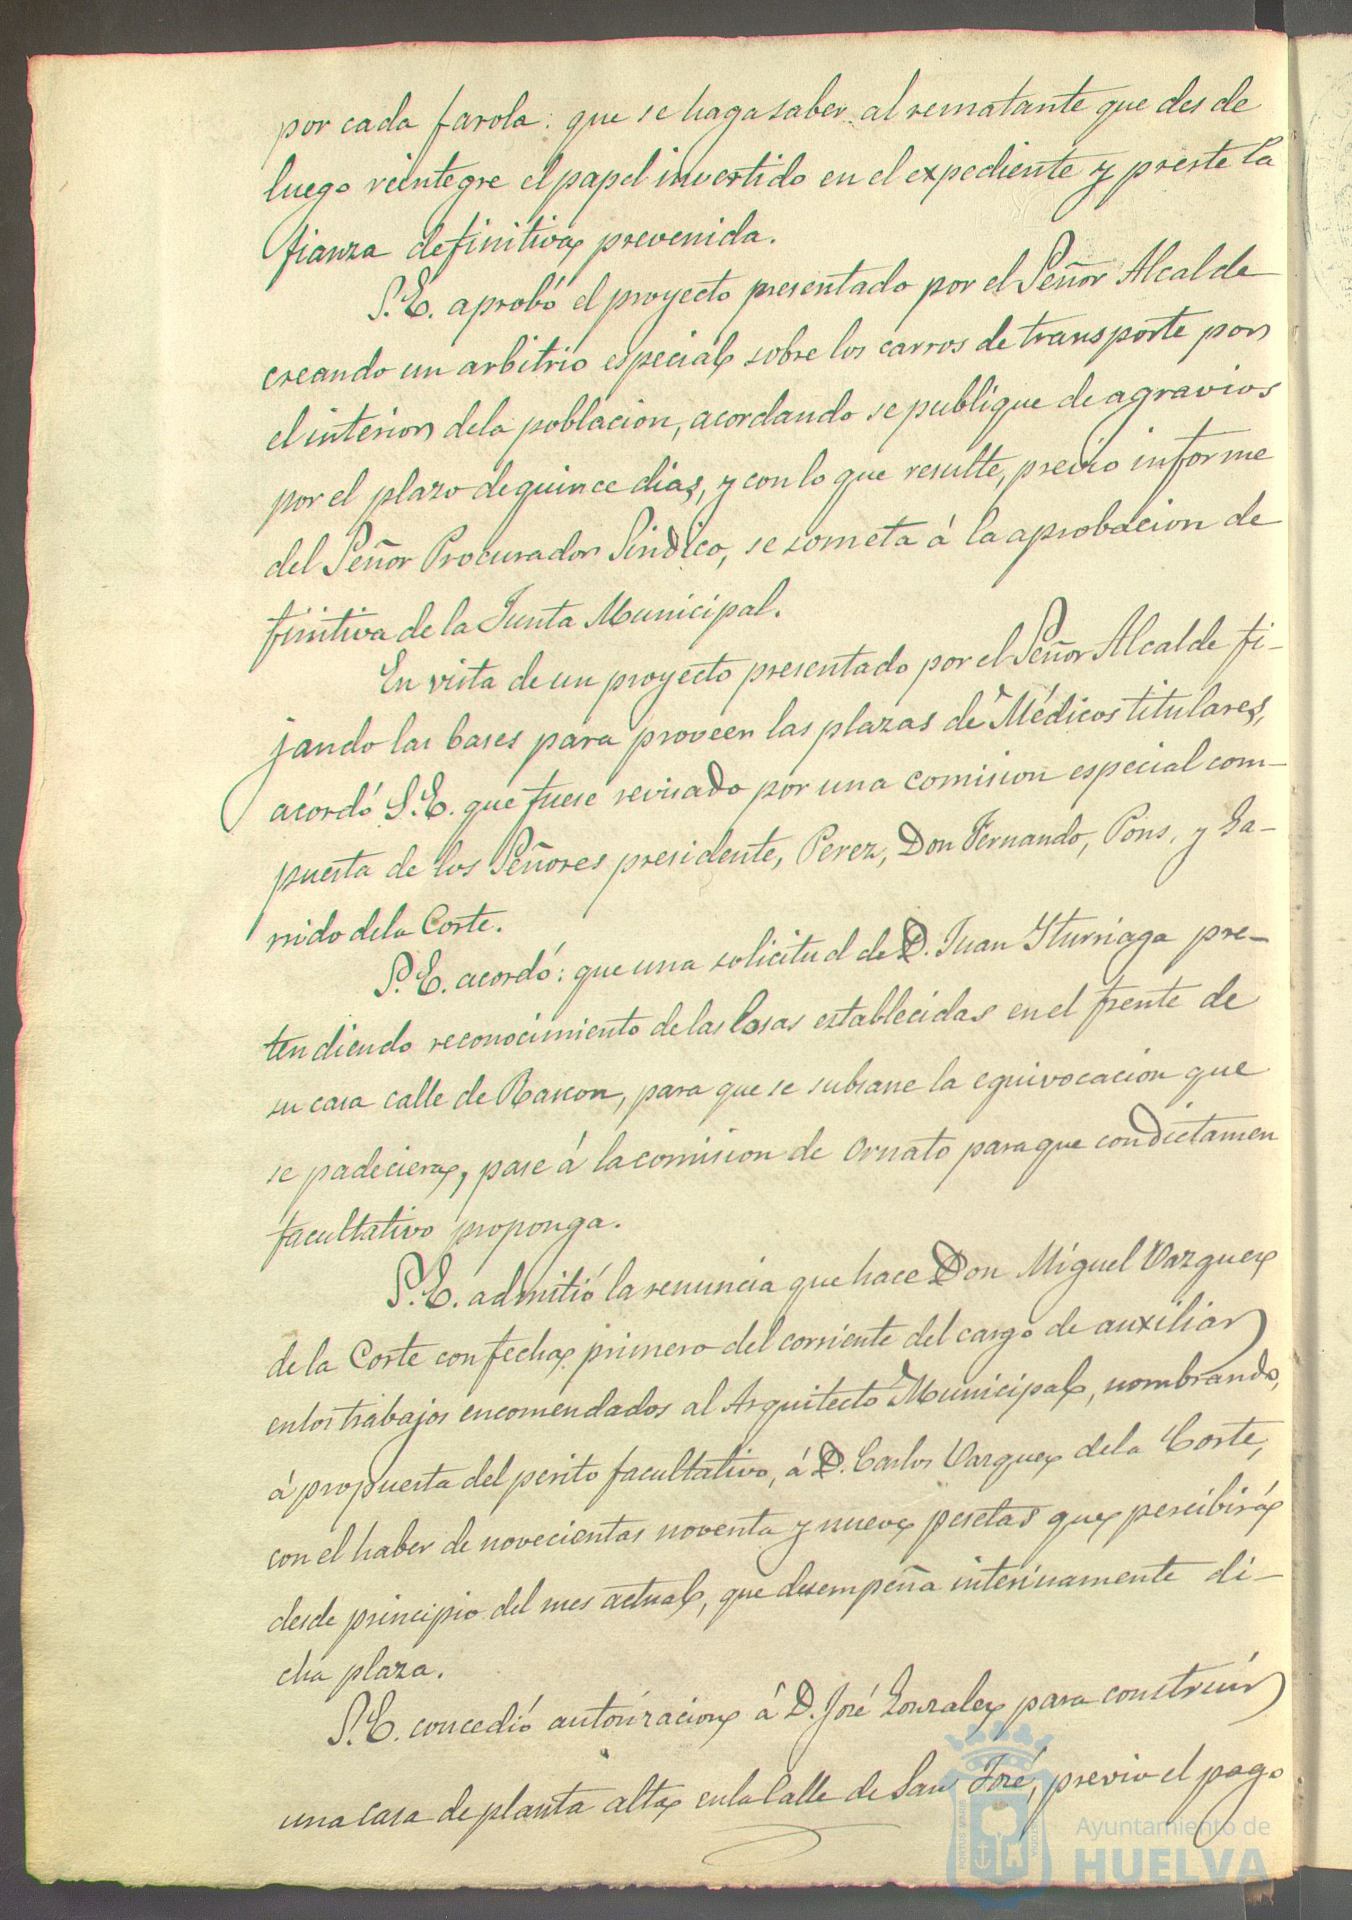 por cada farola: que se haga saber al rematante que desde
luego reintegre el papel invertido en el expediente y preste la
fianza definitiva prevenida.
S.E. aprobó el proyecto presentado por el Señor Alcalde
creando un arbitrio especial sobre los carros de transporte por
el interior de la poblacion, acordando se publique de agravios
por el plazo de quince dias, y con lo que resulte, previo informe
del Señor Procurador Sindico, se someta á la aprobacion de
finitiva de la Junta Municipal.
En vista de un proyecto presentado por el Señor Alcalde fi-
jando las bases para proveer las plazas de Médicos titulares,
acordó S.E. que fuese revisado por una comision especial com-
puesta de los Señores presidente, Perez, Don Fernando, Pons, y Ga-
rrido de la Corte.
S.E. acordó: que una solicitud de D. Juan Yturriaga pre-
tendiendo reconocimiento de las losas establecidas en el frente de
su casa calle de Rascon, para que se subsane la equivocacion que
se padeciera, pase á la comision de Ornato para que con dictamen
facultativo proponga.
S.E. admitió la renuncia que hace Don Miguel Vazquez
de la Corte con fecha primero del corriente del cargo de auxiliar
en los trabajos encomendados al Arquitecto Municipal, nombrando,
á propuesta del perito facultativo, á D. Carlos Vazquez de la Corte,
con el haber de novecientas noventa y nueve pesetas que percibirá
desde principio del mes actual, que desempeña interinamente di-
cha plaza.
S.E. concedió autorizacion á D. José Gonzalez para construir
una casa de planta alta en la Calle de San José, previo el pago
Ayuntamiento de
HUELVA